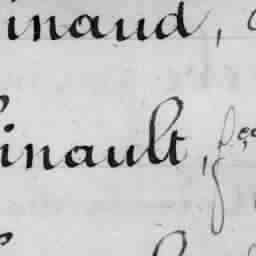 inaud,
inault, fçs